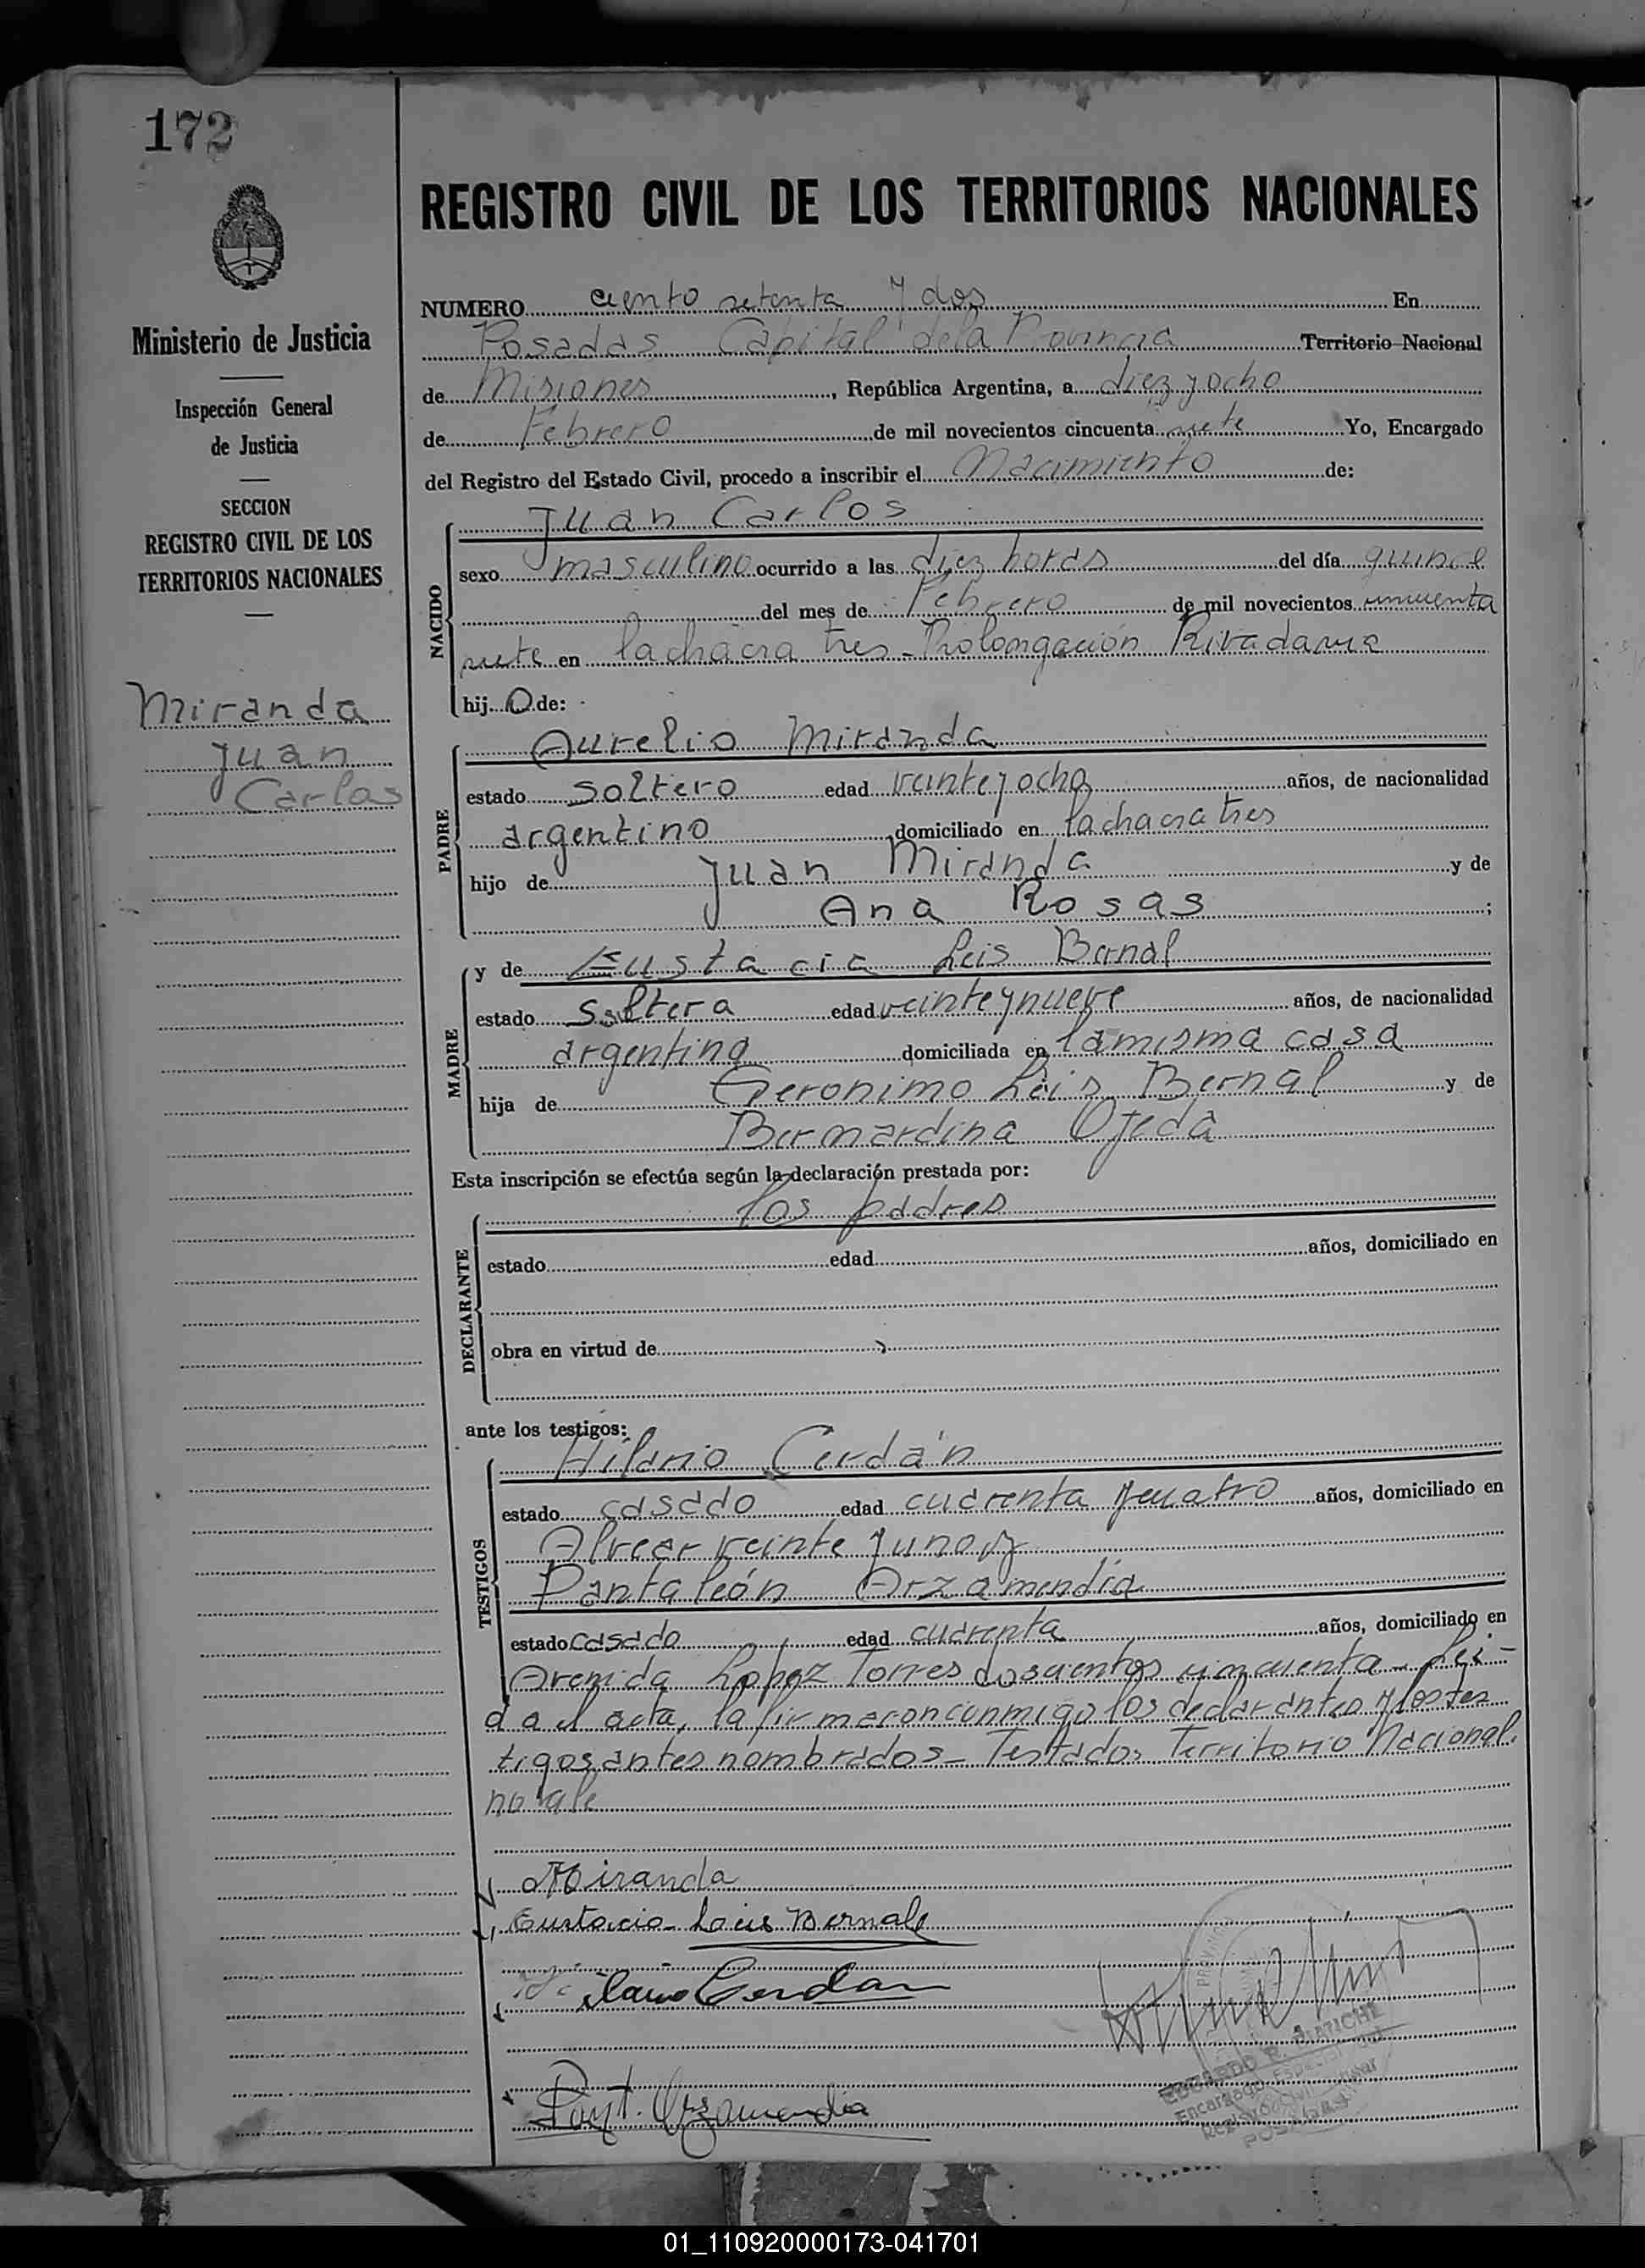 172
Ministerio de Justicia
Inspección General
de Justicia
SECCION
REGISTRO CIVIL DE LOS
TERRITORIOS NACIONALES
Miranda
Juan
Carlos
REGISTRO CIVIL DE LOS TERRITORIOS NACIONALES
NUMERO ciento setenta y dos En
Posadas Capital de la Provincia Territorio Nacional
de Misiones, República Argentina, a diez y ocho
de Febrero de mil novecientos cincuenta siete Yo, Encargado
del Registro del Estado Civil, procedo a inscribir el Nacimiento de:
NACIDO
Juan Carlos
sexo masculino ocurrido a las diez horas del día quince
del mes de Febrero de mil novecientos cincuenta
siete en la chacra tres - Prolongación Rivadavia
hij o de:
PADRE
Aurelio Miranda
estado soltero edad veinte y ocho años, de nacionalidad
argentino domiciliado en la chacra tres
hijo de Juan Miranda y de
Ana Rosas;
MADRE
y de Eustacia Leis Bernal
estado soltera edad veinte y nueve años, de nacionalidad
argentina domiciliada en la misma casa
hija de Geronimo Leis Bernal y de
Bernardina Ojeda
Esta inscripción se efectúa según la declaración prestada por:
DECLARANTE
los padres
estado edad años, domiciliado en
obra en virtud de
ante los testigos:
TESTIGOS
Hilario Cerdán
estado casado edad cuarenta y cuatro años, domiciliado en
Alvear veinte y uno y
Pantaleón Arzamendia
estado casado edad cuarenta años, domiciliado en
Avenida Lopez Torres doscientos cincuenta - Leí-
da el acta, la firmaron conmigo los declarantes y los tes
tigos antes nombrados - Testados Territorio Nacional.
no vale
Miranda
Eustacia Leis Bernale
Hilario Cerdan
Pant. Arzamendia
Encargado Especial
Registro Civil
POSADAS
01_110920000173-041701